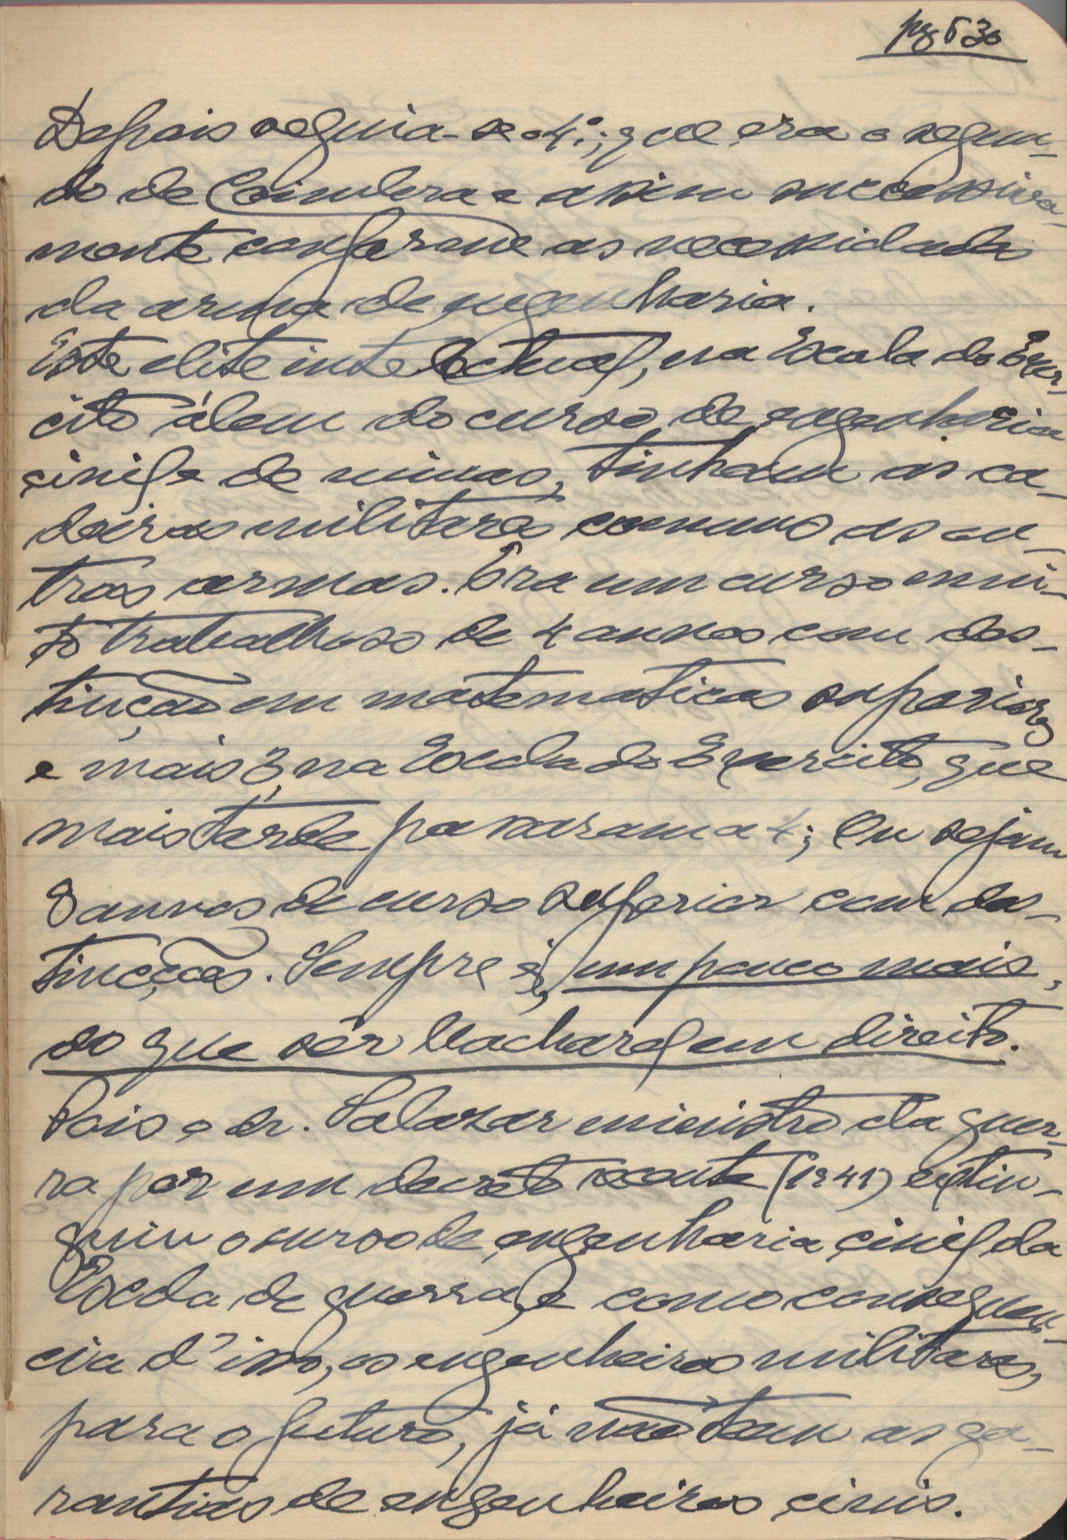 pg 530
Depois seguia-se o 4.º; que era o segun-
do de Coimbra e assim successiva-
mente conforme as necessidades
da arma de engenharia.
Este elite intelectual, na Escola do Exer-
cito álem do curso, de engenharia
civil e de minas, tinham as ca-
deiras militares commo as ou-
tras armas. Era um curso mui-
to trabalhoso de 4 annos com des-
tinção em matematicas superiores
e mais 3, na Escola do Exercito, que
mais tarde passaram a 4; Ou sejam
8 annos de curso superior com des-
tincções. Sempre é, um pouco mais,
do que sêr bacharel em direito.
Pois o dr. Salazar ministro da guer-
ra por um decreto recente (1941) extin-
guiu o curso de engenharia civil da
Escola de guerra, e como consequen-
cia d'isso, os engenheiros militares,
para o futuro, já não tem as ga-
rantias de engenheiros civis.